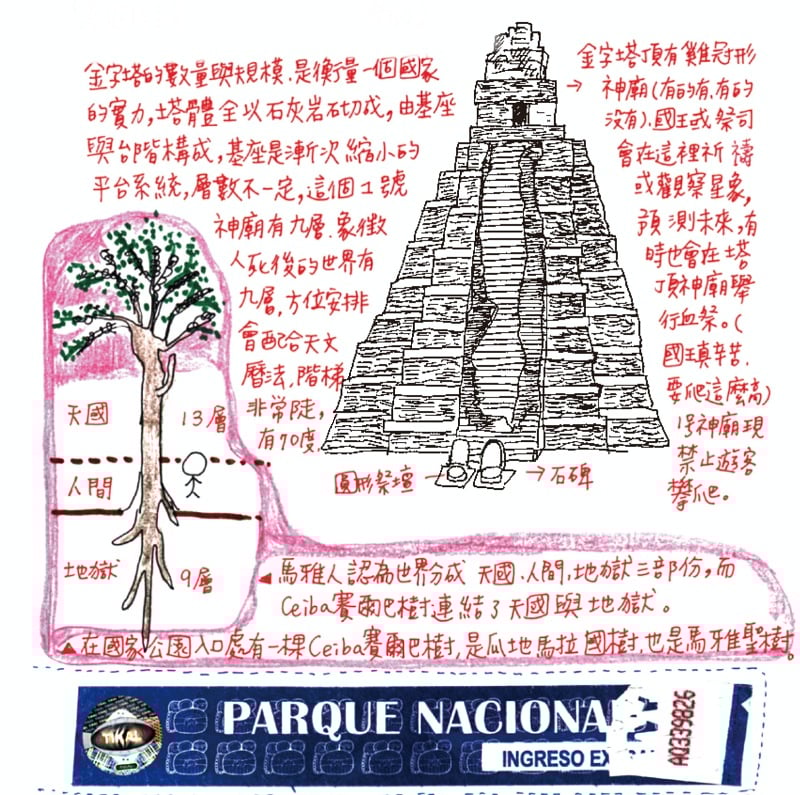 金字塔的數量與規模.是衡量一個國家
的實力,塔體全以石灰岩石切成,由基座
與台階構成,基座是漸次縮小的
平台系統,層數不一定,這個1號
神廟有九層.象徵
人死後的世界有
九層,方位安排
會配合天文
曆法,階梯
非常陡,
有70度.
金字塔頂有雞冠形
神廟(有的有.有的
沒有).國王或祭司
會在這裡祈禱
或觀察星象,
預測未來,有
時也會在塔
頂神廟舉
行血祭。(
國王真辛苦.
要爬這麼高)
1號神廟現
禁止遊客
攀爬。
圓形祭壇
石碑
天國 13層
人間
地獄 9層
馬雅人認為世界分成 天國.人間.地獄三部份,而
Ceiba賽爾巴樹連結了天國與地獄。
在國家公園入口處有一棵Ceiba賽爾巴樹,是瓜地馬拉國樹,也是馬雅聖樹。
TIKAL
PARQUE NACIONA
INGRESO EX
AQ339826